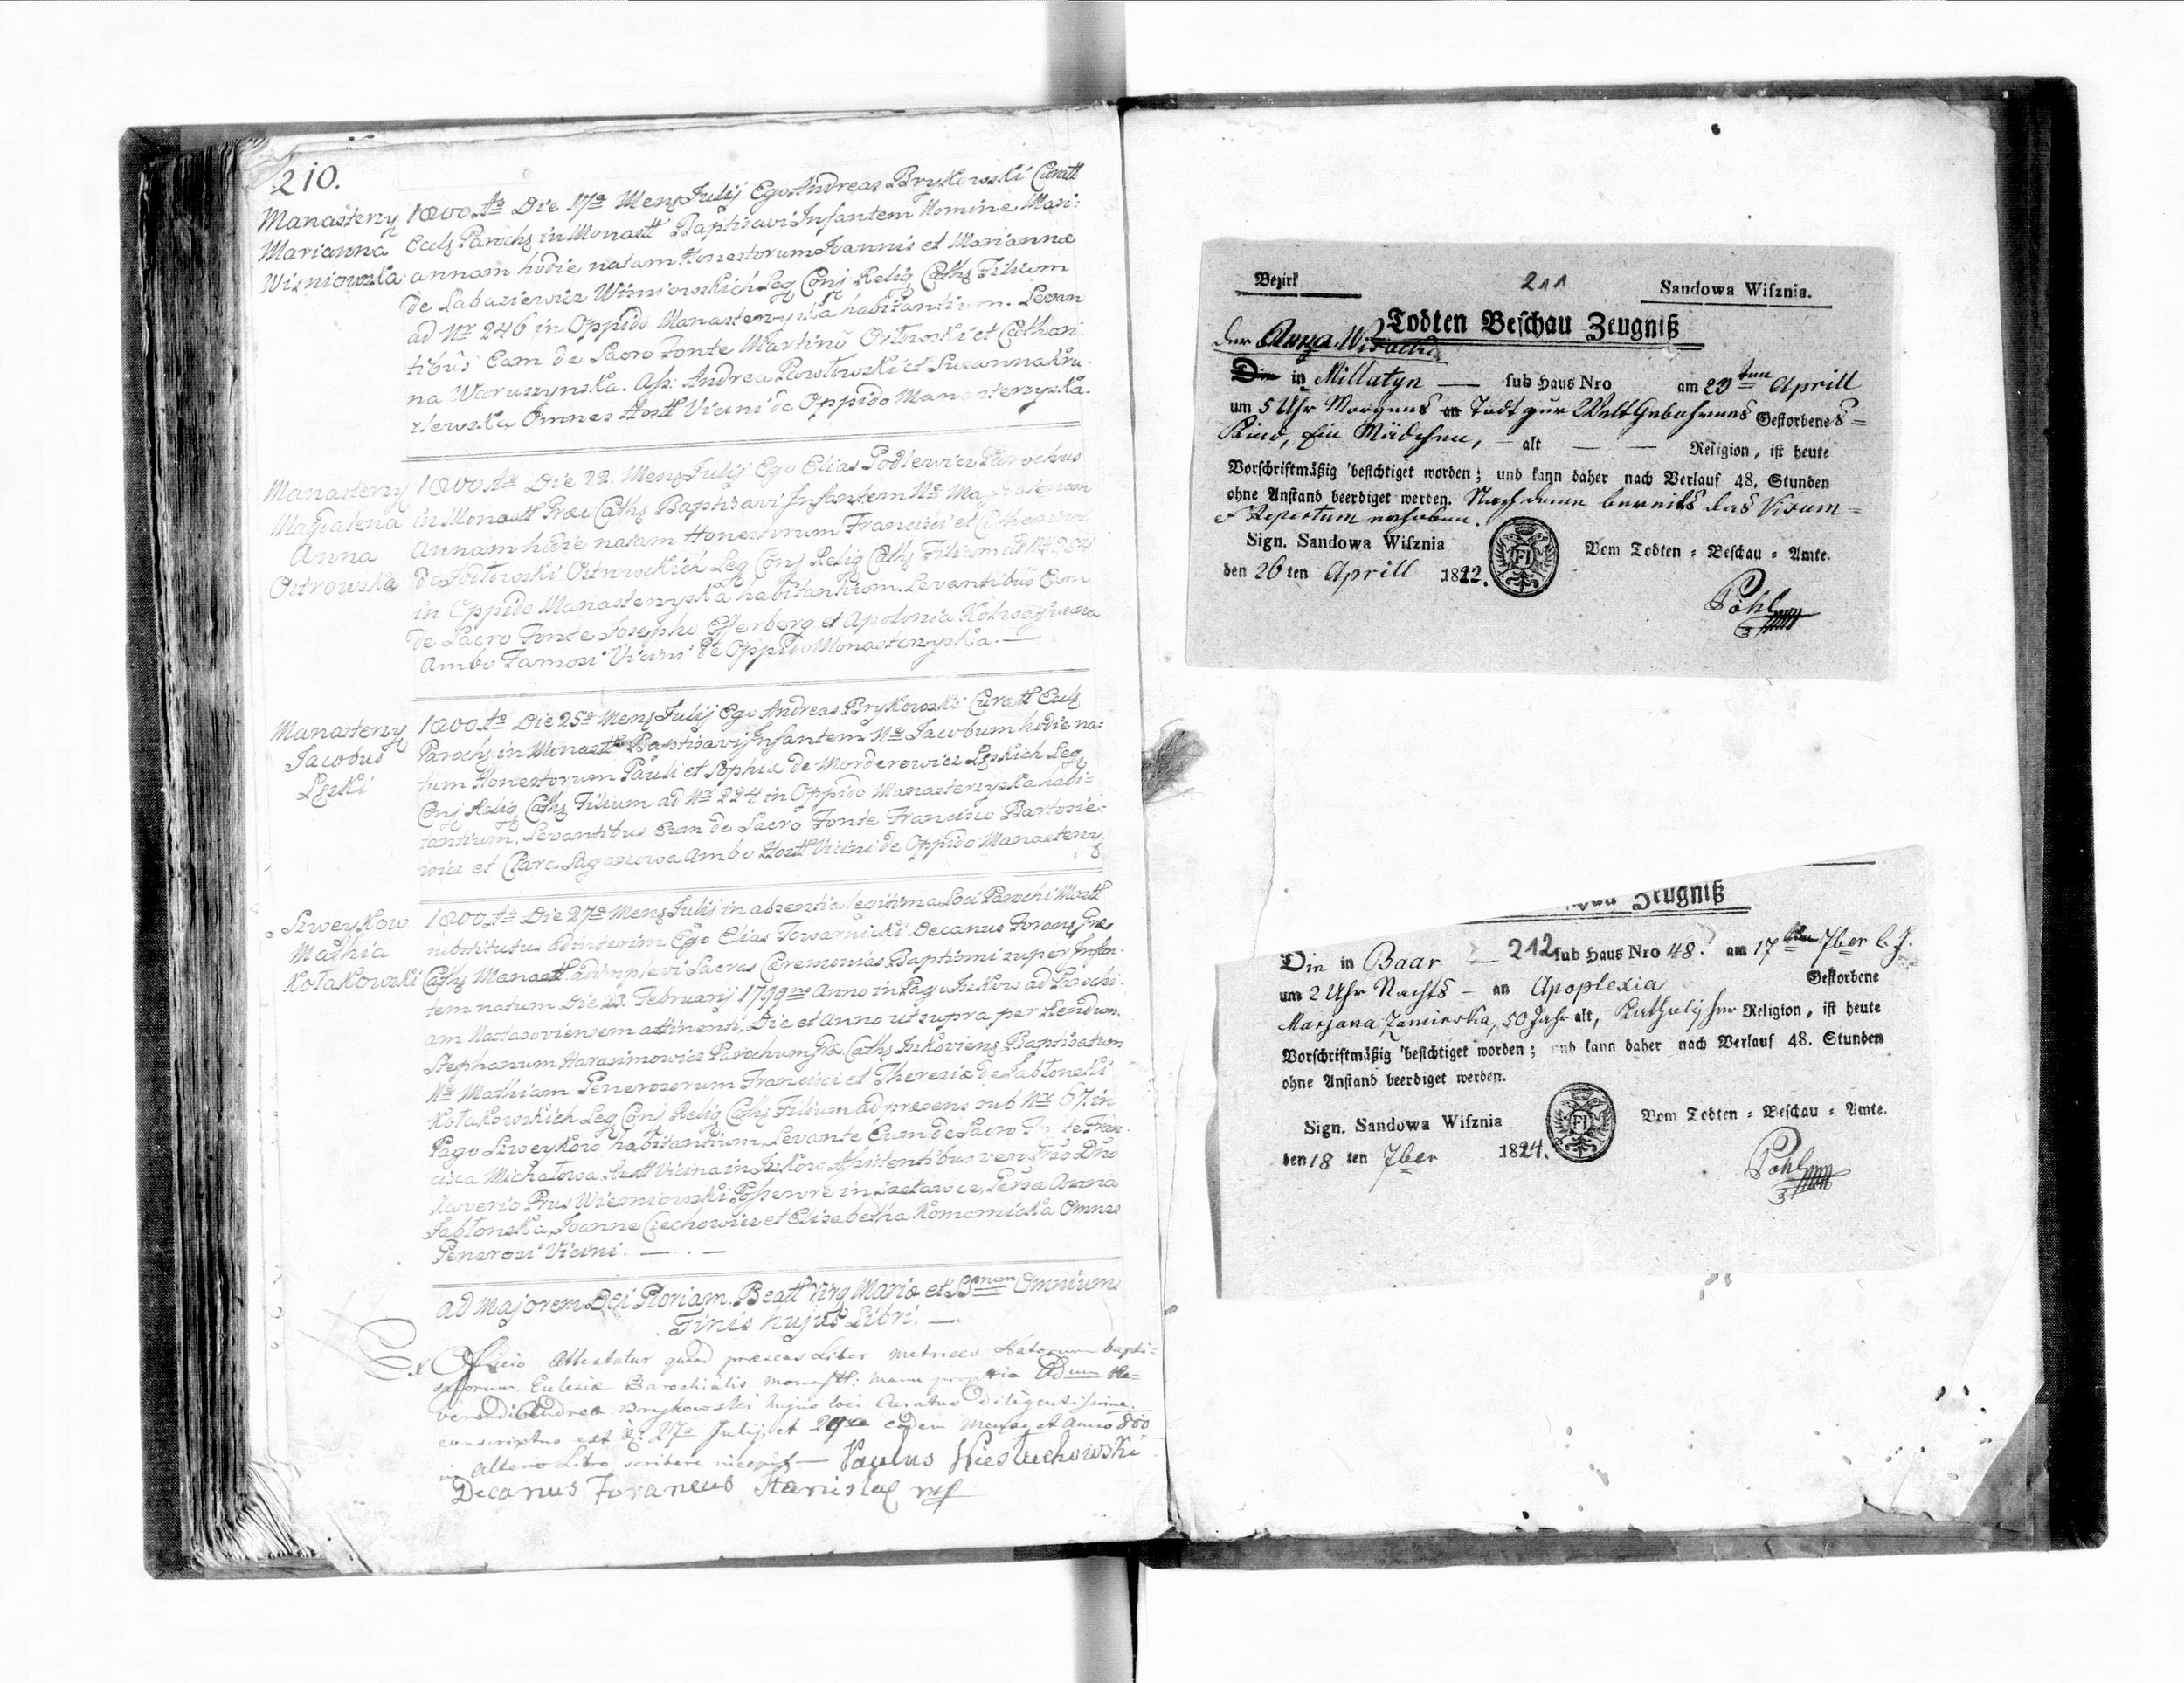 210.
Manasterzy
Marianna
Wisniowska
1800 Ao Die 17a Mens Julij Ego Andreas Brykowski Curatt
Eccls Parochs in Monastt Baptisavi Infantem Nomine Mari:
annam hodie natam Honestorum Joannis et Mariannæ
de Labasiewicz Wisniowskich Leg Conj Relig Caths Filiam
ad Nr 246 in Oppido Manasterzyska habitantium. Levan
tibus Eam de Sacro Fonte Martino Ortowski et Cathari:
na Waruszynska. Ass: Andrea Pawlowski et Susanna Kru
zlewska Omnes Hostt Vicini de Oppido Manasterzyska.
Manasterzy
Magdalena
Anna
Ostrowska
1800 Ao Die 22. Mens Julij Ego Elias Podlewicz Parochus
in Monastt Græ Caths Baptisavi Infantem Ne Magdalenam
Annam hodie natam Honestorum Francisci et Catharinæ
de Ostrowskich Leg Conj Relig Caths Filiam ad Nr 254
in Oppido Manasterzyska habitantium. Levantibus Eam
de Sacro Fonte Josepho Efferberg et Apolonia
Ambo Famosi Vicini de Oppido Monasterzyska. —
Manasterzy
Jacobus
Lęski
1800 Ao Die 25a Mens Julij Ego Andreas Brykowski Curatt Eccls
Parochs in Monastt Baptisavi Infantem Ne Jacobum hodie na:
tum Honestorum Pauli et Sophiæ de Morderowicz Lęskich Leg
Conj Relig Caths Filium ad Nr 224 in Oppido Manasterzyska habi=
tantium, Levantibus Eum de Sacro Fonte Francisco Bartosie:
wicz et Clara Laganowa Ambo Hostt Vicini de Oppido Manasterzy
Szweykow
Mathia
Kołakowski
1800 Ao Die 27a Mens Julij in absentia legitima Loci Parochi Mostt
substitutus adinterim Ego Elias Towarnicki Decanus Forans Græ
Caths Manastt. adimplevi Sacras Ceremonias Baptismi super Infan:
tem natum Die 23. Februarij 1799no Anno in Pago Jzkow ad Parochi:
am Nastasoviensem attinenti, Die et Anno ut supra per Rendum
Stephanum Harasimowicz Parochum Græ Caths Jzkoviens Baptisatum
Ne Mathiam Generosorum Francisci et Theresiæ de Jabłonski
Kołakowskich Leg Conj Relig Caths Filium ad præsens sub Nr 67. in
Pago Szweykow habitantium, Levante Eum de Sacro Fonte Fran:
cisca Michałowa Hostt Vicina in Jzkow Assistentibus vero Gnso Dno
Xaverio Prus Wiesniowski Possesore in Zastawce, Gersa Anna
Jabłonska, Joanne Czechowicz et Elisabetha Komornicka Omnes
Generosi Vicini. — . . —
ad Majorem Dei Gloriam. Beatt Virg Mariæ et SSnrum Omnium
Finis hujus Libri. —
Ex Officio Attestatur quod præsens Liber metrices Natorum bapti=
satorum Eclesiæ Parochialis Monastt: manu propria Adum Re=
verendi Andreæ Brykowski hujus loci Curatus diligentissime
conscriptus est 27a Julij, et 29na eodem Mense et Anno 800
in Altero Libro scribere incepit — Paulus Wiesluchowski
Decanus Foraneus Stanislao mp
Bezirk
211
Sandowa Wisznia.
Todten Beschau Zeugniß
der Anna
Die in Millatyn — sub Haus Nro am 23ten Aprill
um 5 Uhr Morgens an Todt zur Welt Gebohrnes Gestorbenes =
Kind, Ein Mädchen, — alt — — Religion, ist heute
Vorschriftmäßig besichtiget worden; und kann daher nach Verlauf 48. Stunden
ohne Anstand beerdiget werden. Nachdeme bereits das Visum =
et Repertum erhoben.
Sign. Sandowa Wisznia
Vom Todten = Beschau = Amte.
den 26 ten Aprill 1822.
FI
Pöhl
Zeugniß
Die in Baar — 212 sub Haus Nro 48. am 17ten 7ber l. J.
um 2 Uhr Nachts — an Apoplexia Gestorbene
Marjana Zaminska, 50 Jahr alt, Katholischer Religion, ist heute
Vorschriftmäßig besichtiget worden; und kann daher nach Verlauf 48. Stunden
ohne Anstand beerdiget werden.
Sign. Sandowa Wisznia
Vom Todten = Beschau = Amte.
den 18 ten 7ber 1824.
FI
Pöhl